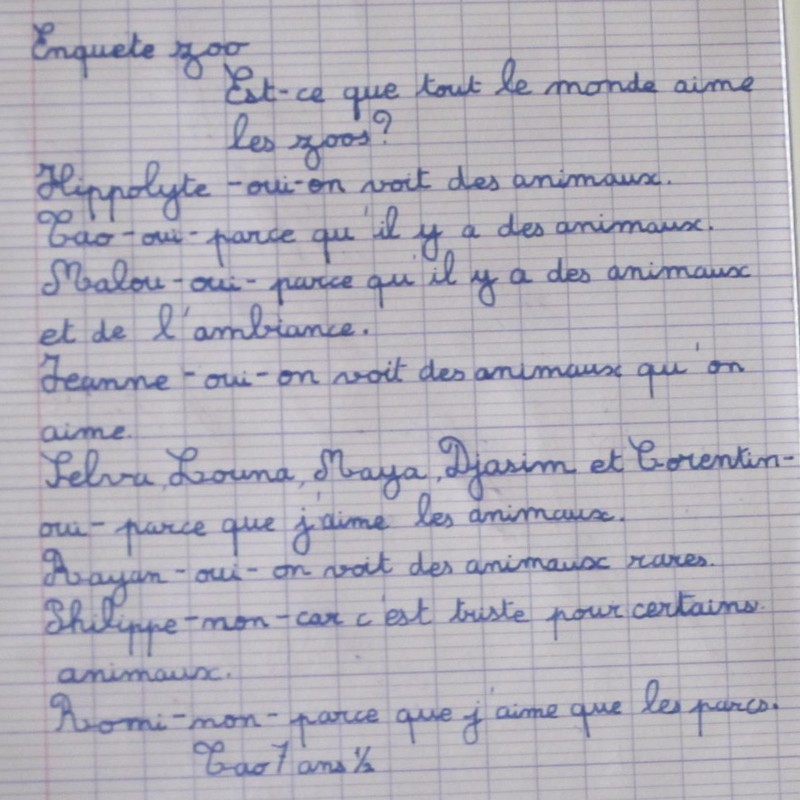 Enquete zoo
Est-ce que tout le monde aime
les zoos?
Hippolyte -oui-on voit des animaux.
Tao-oui-parce qu'il y a des animaux.
Malou-oui-parce qu'il y a des animaux
et de l'ambiance.
Jeanne-oui-on voit des animaux qu'on
aime.
Selva, Louna, Maya, Djasim et Corentin-
oui-parce que j'aime les animaux.
Rayan-oui-on voit des animaux rares.
Philippe-non-car c'est triste pour certains
animaux.
Romi-non-parce que j'aime que les parcs.
Tao 7 ans ½